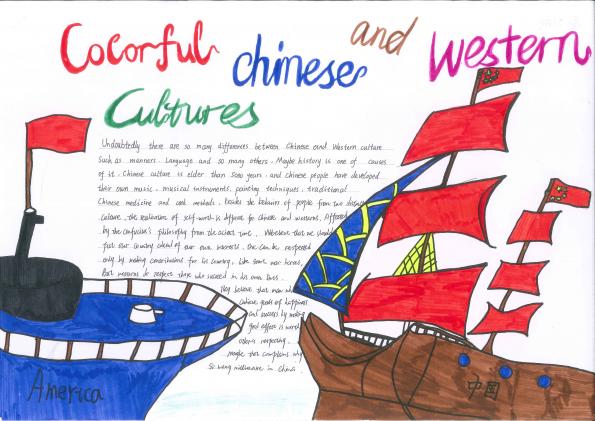 Colorful Chinese and Western
Cultures
Undoubtedly there are so many differences between Chinese and Western culture
Such as manners. Language and so many others. Maybe history is one of causes
of it. Chinese culture is elder than 5000 years. and Chinese people have developed
their own music, musical instruments, painting techniques, traditional
Chinese medicine and cook methods. Besides the behavior of people from two
culture, the realization of self-worth is different for Chinese and westerns. Affected
by the confucius's philosophy from the ancient time. We believe that we should
put our country ahead of our own interests. One can be respected
only by making contributions for his country, like some war heroes.
But westerns do respect those who succeed in his own lives.
They believe that man who
achieve goals of happiness
and success by making
good effort is worth
others respecting.
maybe that complains why
so many millionaire in China.
America
中国